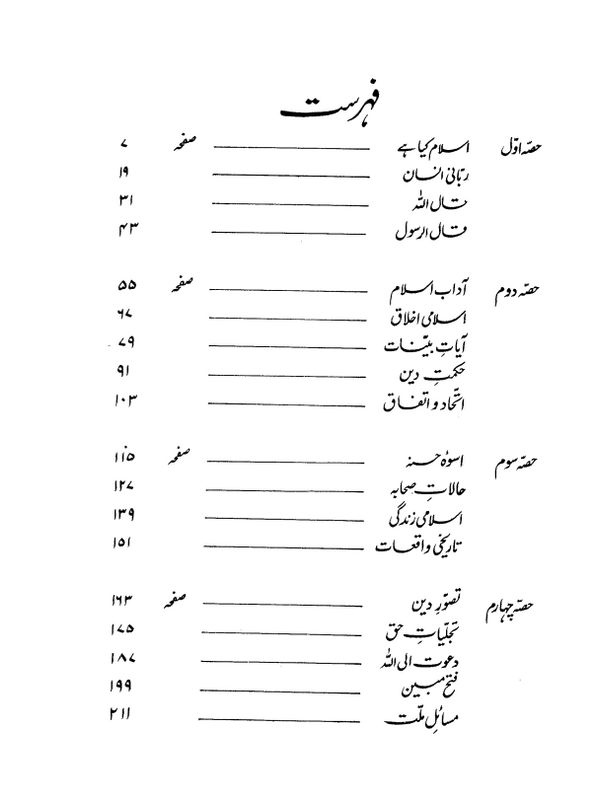 فہرست
حصہ اوّل اسلام کیا ہے صفحہ ۷
ربّانی انسان ۱۹
قال اللہ ۳۱
قال الرسول ۴۳
حصہ دوم آداب اسلام صفحہ ۵۵
اسلامی اخلاق ۶۷
آیاتِ بیّنات ۷۹
حکمتِ دین ۹۱
اتّحاد و اتفاق ۱۰۳
حصہ سوم اسوۂ حسنہ صفحہ ۱۱۵
حالاتِ صحابہ ۱۲۷
اسلامی زندگی ۱۳۹
تاریخی واقعات ۱۵۱
حصہ چہارم تصوّرِ دین صفحہ ۱۶۳
تجلّیاتِ حق ۱۷۵
دعوت الی اللہ ۱۸۷
فتح مبین ۱۹۹
مسائلِ ملّت ۲۱۱